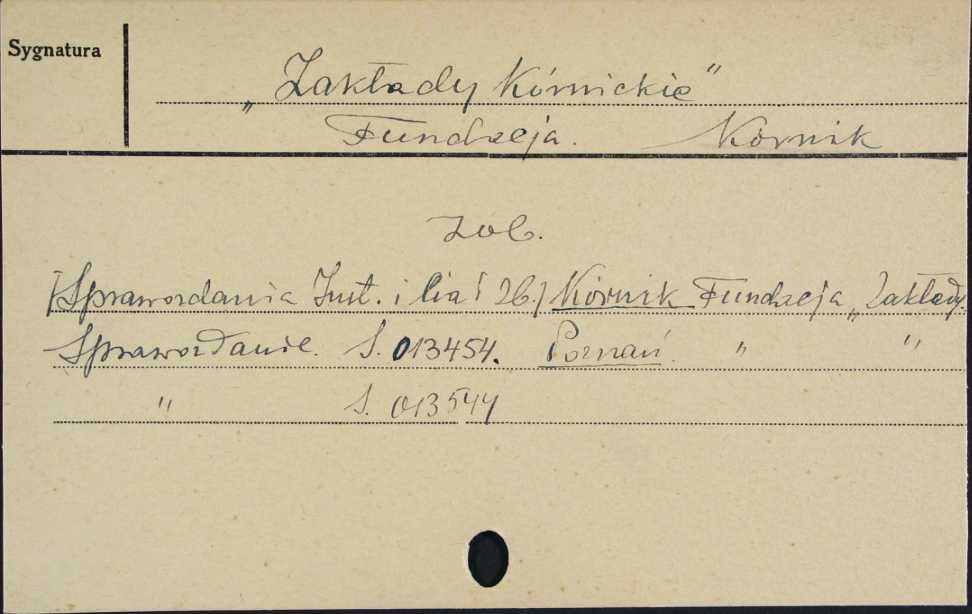 Sygnatura
„Zakłady Kórnickie"
Fundacja. Kórnik
zob.
[Sprawozdania Inst. i 2b.] Kórnik Fundacja „Zakłady
Sprawozdanie. S. 013454. Poznań. " "
" S. 013544